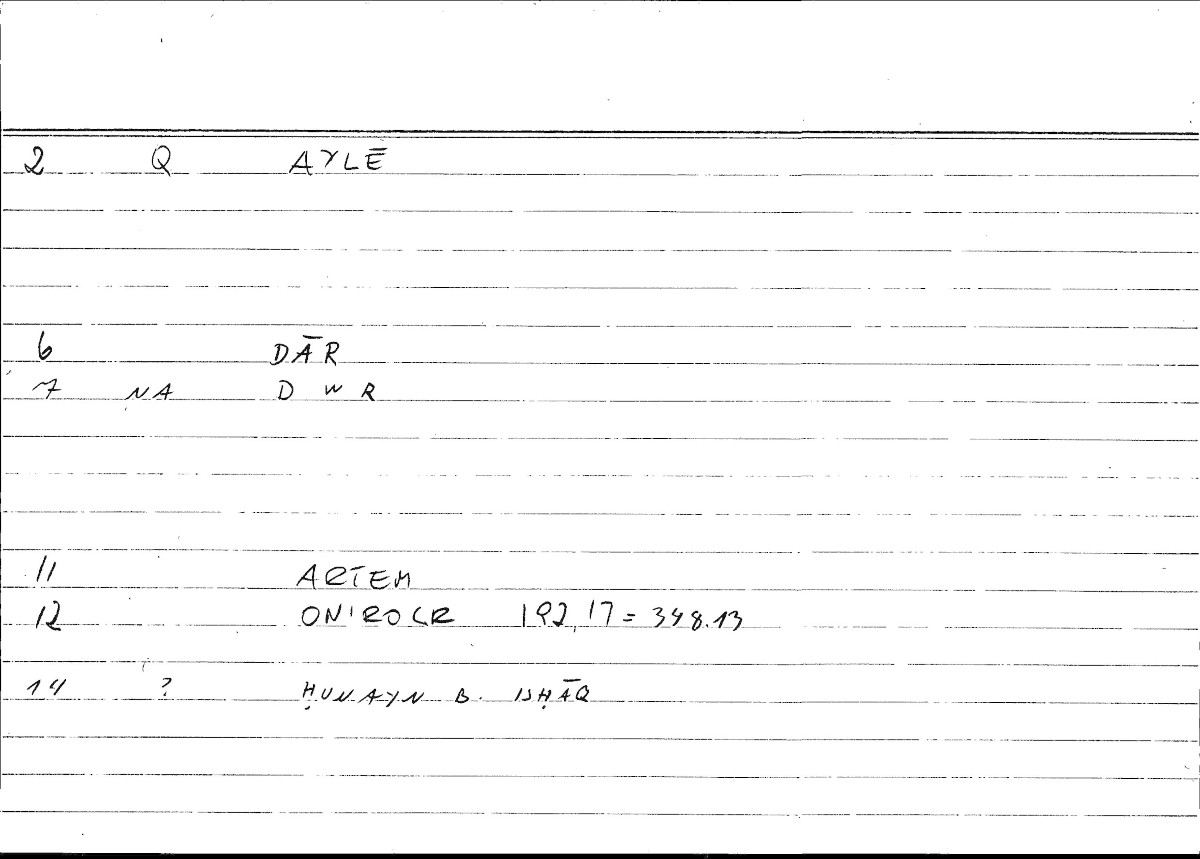 2 Q AYLĒ
6 DĀR
7 NA D W R
11 ARTEM
12 ONIROCR 192,17 = 348.13
14 ? ḤUNAYN B. ISḤĀQ